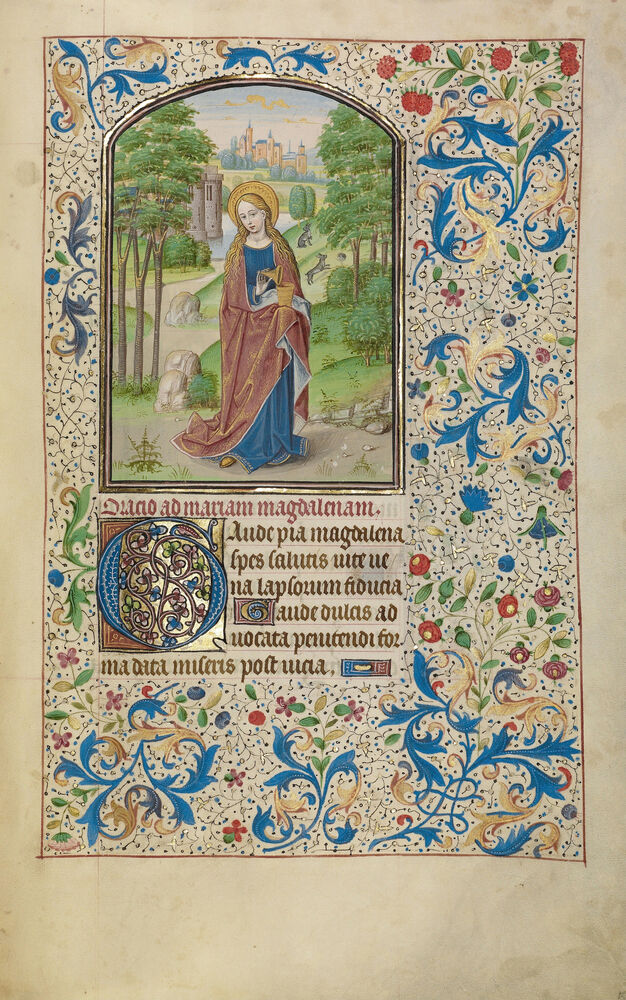 Oracio ad mariam magdalenam.
Gaude pia magdalena
spes salutis vite ve
na lapsorum fiducia
Gaude dulcis ad
uocata penitendi for
ma data miseris post uicia,